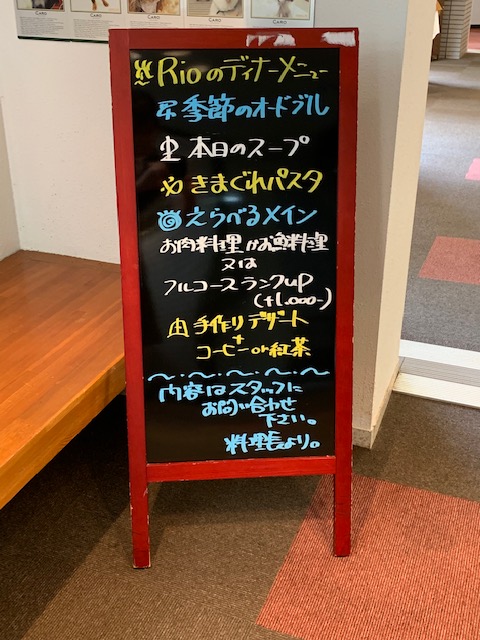 CARO
CARO
CARO
Rioのディナーメニュー
季節のオードブル
本日のスープ
きまぐれパスタ
えらべるメイン
お肉料理 orお魚料理
又は
フルコースランクup
(+1,000-)
手作りデザート
+
コーヒーor紅茶
内容はスタッフに
お問い合わせ
下さい。
料理長より。